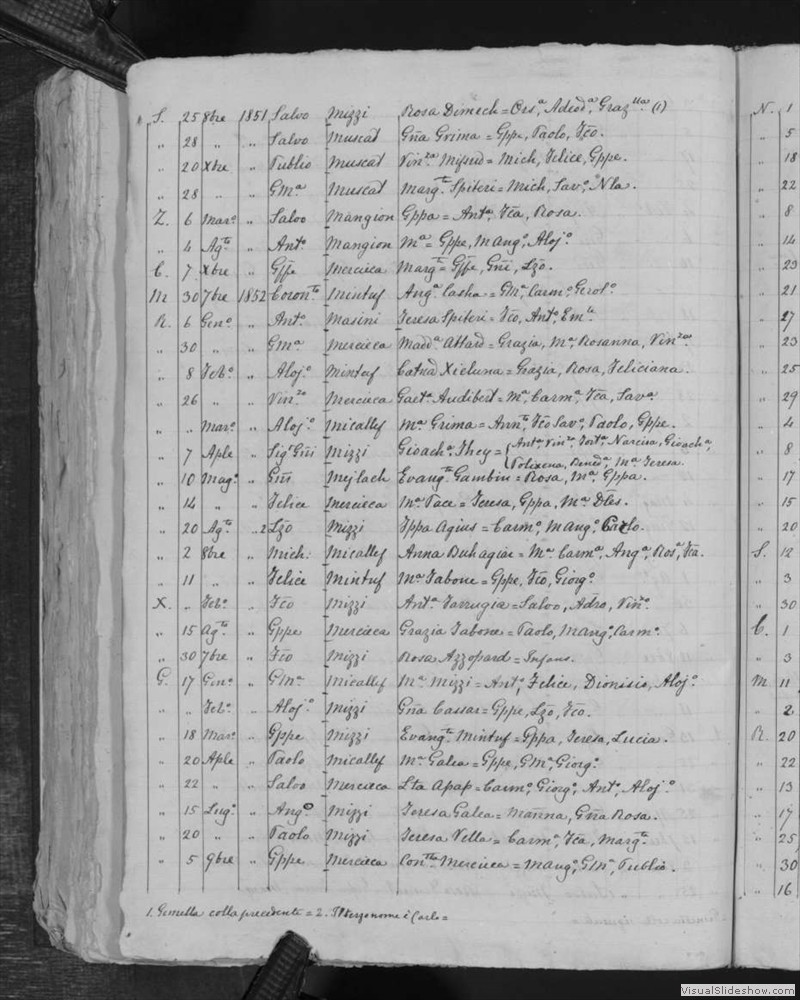 S. 25 8bre 1851 Salvo Mizzi Rosa Dimech = Ors.a Adeod.a Graz.lla (1)
„ 28 „ „ Salvo Muscat Gña Grima = Gppe, Paolo, Fco.
„ 20 Xbre „ Publio Muscat Vin.za Mifsud = Mich, Felice, Gppe.
„ 28 „ „ GMa Muscat Marg.ta Spiteri = Mich, Sav.o Nla.
Z. 6 Mar.o „ Salvo Mangion Gppa = Ant.a Fca, Rosa.
„ 4 Ag.to „ Ant.o Mangion M.a = Gppe, Mang.o Aloj.o
C. 7 Xbre „ Gppe Mercieca Marg.ta = Gppe, Gñi, Lzo.
M 30 7bre 1852 Coron.to Mintuf Ang.a Casha = GM.a Carm.o Gerol.o
R. 6 Gen.o „ Ant.o Masini Teresa Spiteri = Fco, Ant.o Em.le
„ 30 „ „ GMa Mercieca Madd.a Attard = Grazia, M.a Rosanna, Vin.za
„ 8 Feb.o „ Aloj.o Mintuf Catud Xicluna = Grazia, Rosa, Feliciana.
„ 26 „ „ Vin.zo Mercieca Gaet.a Audibert = M.a Carm.a Fca, Sav.a
„ „ Mar.o „ Aloj.o Micallef M.a Grima = Ann.to Fco Sav.o Paolo, Gppe.
„ 7 Aple „ Sig.r Gñi Mizzi Gioach.a They = { Ant.a Vin.za Fort.a Narcisa, Gioach.a
Polixena, Bened.a M.a Teresa.
„ 10 Mag.o „ Gñi Mejlach Evang.ta Gambin = Rosa, M.a Gppa.
„ 14 „ „ Felice Mercieca M.a Pace = Teresa, Gppa, M.a Dles.
„ 20 Ag.to „ 2 Lzo Mizzi Gppa Agius = Carm.o Mang.o Carlo.
„ 2 8bre „ Mich: Micallef Anna Buhagiar = M.a Carm.a Ang.a Ros.a Fca.
„ 11 „ „ Felice Mintuf M.a Tabone = Gppe, Fco, Giorg.o
X. „ Feb.o „ Fco Mizzi Ant.a Farrugia = Salvo, Adro, Vin.o
„ 15 Ag.to „ Gppe Mercieca Grazia Tabone = Paolo, Mang.o Carm.o
„ 30 7bre „ Fco Mizzi Rosa Azzopard = Infans.
G. 17 Gen.o „ GMa Micallef M.a Mizzi = Ant.o Felice, Dionisio, Aloj.o
„ „ Feb.o „ Aloj.o Mizzi Gña Cassar = Gppe, Lzo, Fco.
„ 18 Mar.o „ Gppe Mizzi Evang.ta Mintuf = Gppa, Teresa, Lucia.
„ 20 Aple „ Paolo Micallef M.a Galea = Gppe, GM.a Giorg.o
„ 22 „ „ Salvo Mercieca Lta Apap = Carm.o Giorg.o Ant.o Aloj.o
„ 15 Lug.o „ Ang.o Mizzi Teresa Galea = Marina, Gña Rosa.
„ 20 „ „ Paolo Mizzi Teresa Vella = Carm.a Fca, Marg.ta
„ 5 9bre „ Gppe Mercieca Con.tta Mercieca = Mang.o GM.a Publio.
1. Gemella colla precedente = 2. Il terzo nome è Carlo =
N. 1
„ 5
„ 18
„ 22
„ 8
„ 14
„ 23
„ 21
„ 27
„ 23
„ 25
„ 29
„ 4
„ 8
„ 17
„ 15
„ 20
S. 12
„ 3
„ 30
C. 1
„ 3
M 11
„ 2
R. 20
„ 22
„ 13
„ 17
„ 25
„ 30
„ 16
VisualSlideshow.com